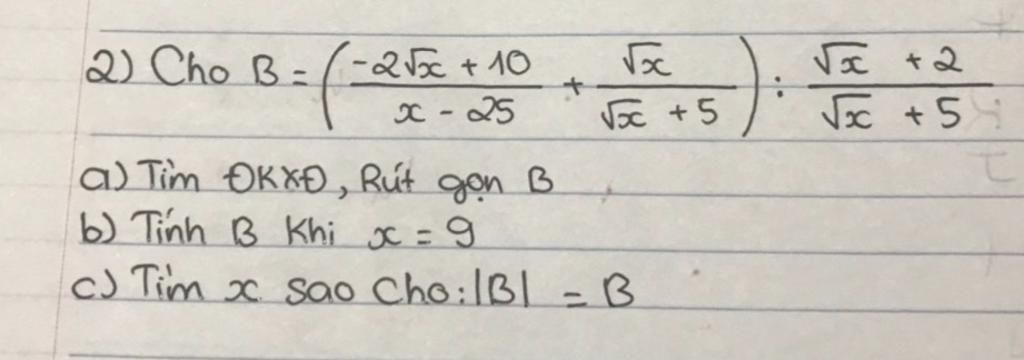 2) Cho B = ( (-2√x + 10)/(x - 25) + √x/(√x + 5) ) : (√x + 2)/(√x + 5)
a) Tìm ĐKXĐ, Rút gọn B
b) Tính B Khi x = 9
c) Tìm x sao Cho: |B| = B